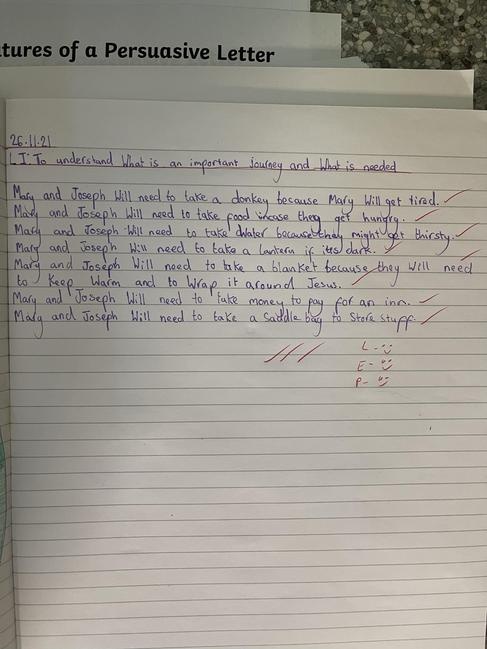 tures of a Persuasive Letter
26.11.21
L I: To understand What is an important journey and What is needed
Mary and Joseph Will need to take a donkey because Mary Will get tired.
Mary and Joseph Will need to take food incase they get hungry.
Mary and Joseph Will need to take Water because they might get thirsty.
Mary and Joseph Will need to take a Lantern if its dark.
Mary and Joseph Will need to take a blanket because they Will need
to Keep Warm and to Wrap it around Jesus.
Mary and Joseph Will need to take money to pay for an inn.
Mary and Joseph Will need to take a Saddle bag to Store stuff.
L -
E -
P -